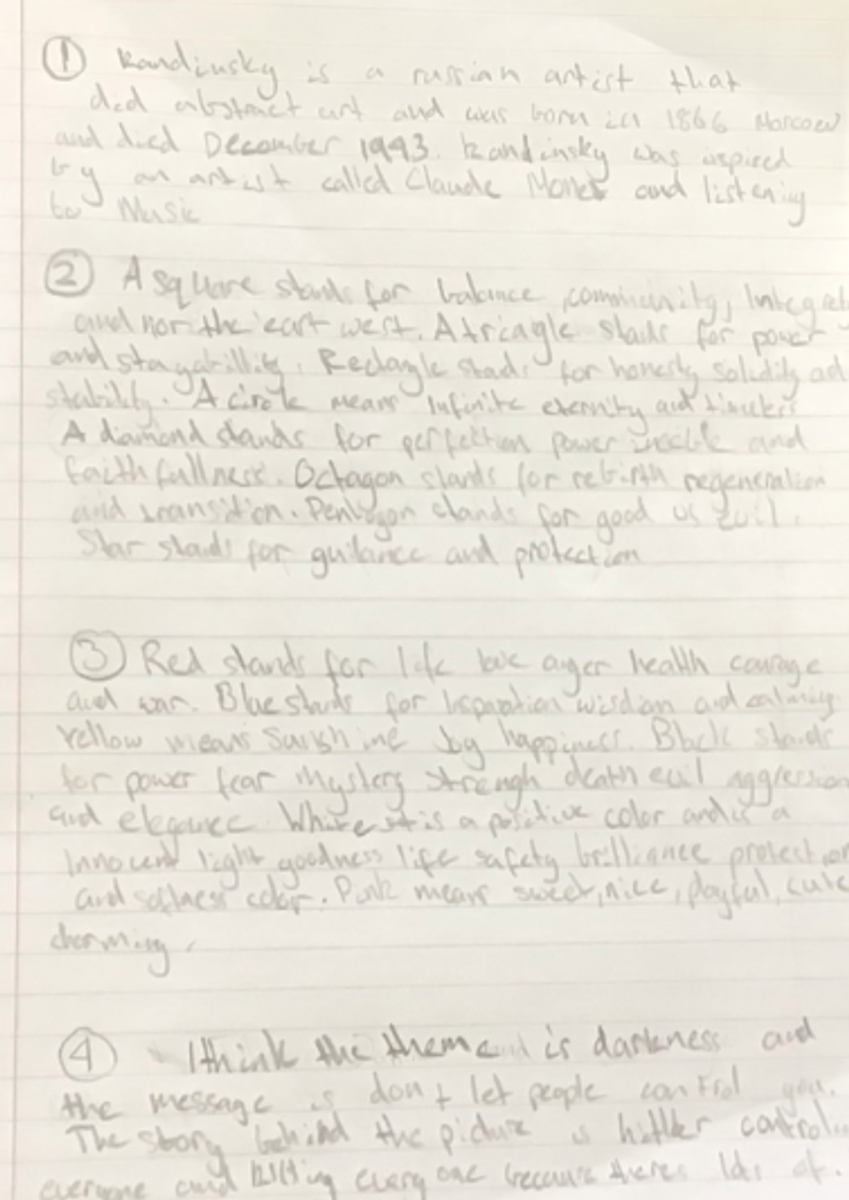 ① Kandinsky is a russian artist that
did abstract art and was born in 1866 Moscow
and died December 1943. Kandinsky was inspired
by an artist called Claude Monet and listening
to Music
② A square stands for balance, community,
and the west. A triagle stands for power
and Rectangle stands for honesty solidity ad
stability. A circle means infinite eternity and
A diamond stands for perfection power and
faithfullness. Octagon stands for rebirth regeneration
and transition. Pentagon stands for good vs Evil.
Star stands for and protection
③ Red stands for life love anger health courage
and war. Blue stands for wisdom and calming
Yellow means Sunshine joy happiness. Black stands
for power fear Mystery strengh death evil aggression
and elegance White it is a positive color and is a
Innocent light goodness life safety brilliance protection
and softness color. Pink means sweet, nice, playful, cute
charming.
④ I think the theme is darkness and
the message is dont let people control you.
The story behind the picture is hitller
everyone and killing every one because theres lots of.